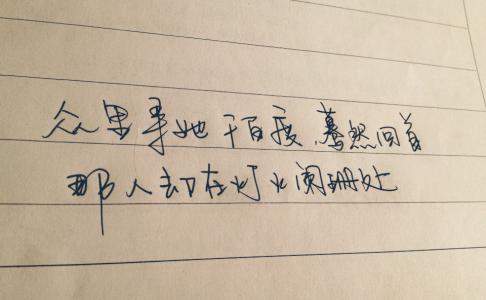 众里寻她千百度,蓦然回首
那人却在灯火阑珊处